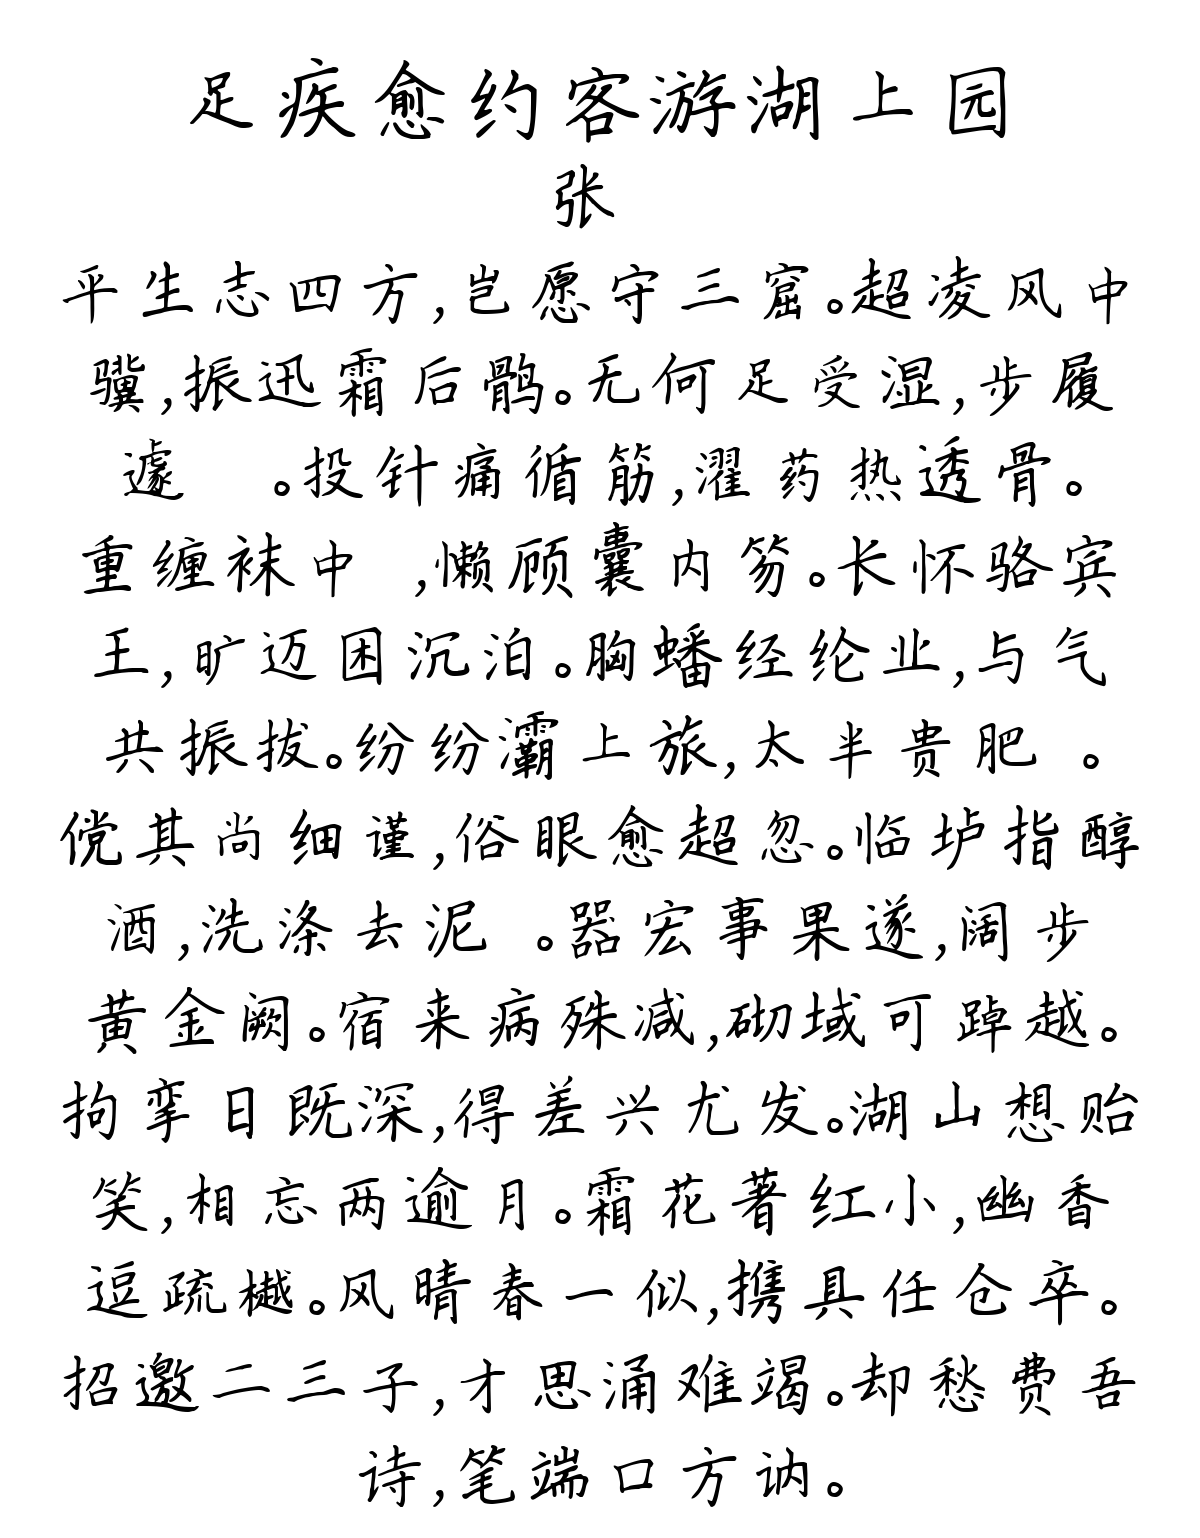 足疾愈约客游湖上园
张
平生志四方,岂愿守三窟。超凌风中
骥,振迅霜后鹘。无何足受湿,步履
遽 。投针痛循筋,濯药热透骨。
重缠袜中 ,懒顾囊内笏。长怀骆宾
王,旷迈困沉泊。胸蟠经纶业,与气
共振拔。纷纷灞上旅,太半贵肥 。
傥其尚细谨,俗眼愈超忽。临垆指醇
酒,洗涤去泥 。器宏事果遂,阔步
黄金阙。宿来病殊减,砌域可踔越。
拘挛日既深,得差兴尤发。湖山想贻
笑,相忘两逾月。霜花著红小,幽香
逗疏樾。风晴春一似,携具任仓卒。
招邀二三子,才思涌难竭。却愁费吾
诗,笔端口方讷。